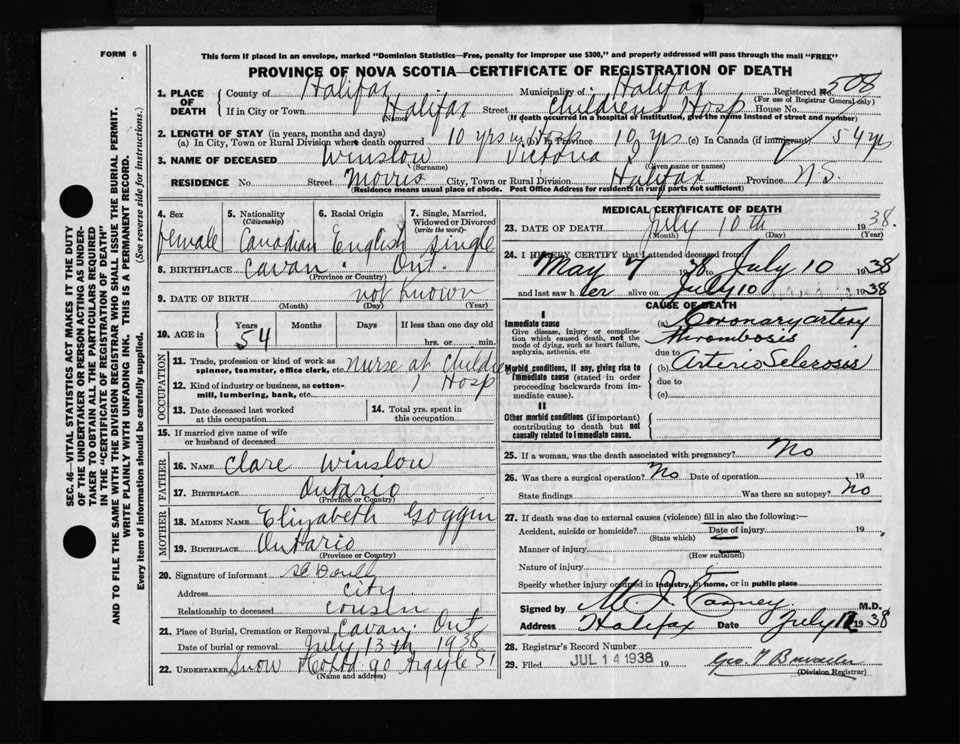 FORM 6
This form if placed in an envelope, marked "Dominion Statistics—Free, penalty for improper use $300," and properly addressed will pass through the mail "FREE"
PROVINCE OF NOVA SCOTIA—CERTIFICATE OF REGISTRATION OF DEATH
1. PLACE OF DEATH County of Halifax Municipality of Halifax Registered No. 508
(For use of Registrar General only)
If in City or Town Halifax Street Childrens Hosp House No.
(Name) (If death occurred in a hospital or institution, give the name instead of street and number)
2. LENGTH OF STAY (in years, months and days)
(a) In City, Town or Rural Division where death occurred 10 yrs in Hosp In Province 10 yrs (c) In Canada (if immigrant) 54 yrs
3. NAME OF DECEASED Winslow Victoria
(Surname) (Given name or names)
RESIDENCE No. Street Morris City, Town or Rural Division Halifax Province N.S.
(Residence means usual place of abode. Post Office Address for residents in rural parts not sufficient)
4. Sex 5. Nationality (Citizenship) 6. Racial Origin 7. Single, Married, Widowed or Divorced (write the word)
Female Canadian English Single
8. BIRTHPLACE Cavan Ont.
(Province or Country)
9. DATE OF BIRTH not known
(Month) (Day) (Year)
10. AGE in Years Months Days If less than one day old
54 hrs. or min.
OCCUPATION
11. Trade, profession or kind of work as spinner, teamster, office clerk, etc. Nurse at Children
12. Kind of industry or business, as cotton-mill, lumbering, bank, etc. Hosp
13. Date deceased last worked at this occupation 14. Total yrs. spent in this occupation
15. If married give name of wife or husband of deceased
FATHER
16. NAME Clare Winslow
17. BIRTHPLACE Ontario
(Province or Country)
MOTHER
18. MAIDEN NAME Elizabeth Goggin
19. BIRTHPLACE Ontario
(Province or Country)
20. Signature of informant
Address City
Relationship to deceased Cousin
21. Place of Burial, Cremation or Removal Cavan Ont
Date of burial or removal July 13th 1938
22. UNDERTAKER Snow & Co Ltd 90 Argyle St
(Name and address)
MEDICAL CERTIFICATE OF DEATH
23. DATE OF DEATH July 10th 1938.
(Month) (Day) (Year)
24. I HEREBY CERTIFY that I attended deceased from
May 7 1938 to July 10 1938
and last saw her alive on July 10 1938
CAUSE OF DEATH
I
Immediate cause (a) Coronary artery
Give disease, injury or complication which caused death, not the mode of dying, such as heart failure, asphyxia, asthenia, etc thrombosis
due to
Morbid conditions, if any, giving rise to immediate cause (stated in order proceeding backwards from immediate cause). (b) Arterio Sclerosis
due to
(c)
II
Other morbid conditions (if important) contributing to death but not causally related to immediate cause.
25. If a woman, was the death associated with pregnancy? No
26. Was there a surgical operation? No Date of operation 19
State findings Was there an autopsy? No
27. If death was due to external causes (violence) fill in also the following:—
Accident, suicide or homicide? Date of injury 19
(State which)
Manner of injury
(How sustained)
Nature of injury
Specify whether injury occurred in industry, in home, or in public place
Signed by M. J. Carney. M.D.
Address Halifax Date July 12 1938
28. Registrar's Record Number
29. Filed JUL 14 1938 19
(Division Registrar)
SEC. 46—VITAL STATISTICS ACT MAKES IT THE DUTY
OF THE UNDERTAKER OR PERSON ACTING AS UNDER-
TAKER TO OBTAIN ALL THE PARTICULARS REQUIRED
IN THE "CERTIFICATE OF REGISTRATION OF DEATH"
AND TO FILE THE SAME WITH THE DIVISION REGISTRAR WHO SHALL ISSUE THE BURIAL PERMIT.
WRITE PLAINLY WITH UNFADING INK. THIS IS A PERMANENT RECORD.
Every item of information should be carefully supplied. (See reverse side for instructions.)